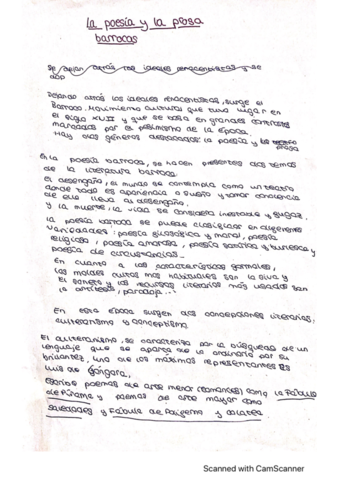 La poesía y la prosa
barrocas
Se dejan atrás los ideales renacentistas y se
Dejando atrás los ideales renacentistas, surge el
Barroco. Movimiento cultural que tuvo lugar en
el siglo XVII y que se basa en grandes contrastes
marcados por el pesimismo de la época.
Hay dos géneros destacados: la poesía y la
prosa
En la poesía barroca, se hacen presentes dos temas
de la literatura barroca.
El desengaño, el mundo se contempla como un teatro
donde todo es apariencia o sueño y tomar conciencia
de ello lleva al desengaño.
y la muerte, la vida se considera inestable y fugaz.
La poesía barroca se puede clasificar en diferentes
variedades: poesía filosófica y moral, poesía
religiosa, poesía amorosa, poesía satírica y burlesca y
poesía de circunstancias.
En cuanto a las características formales,
los moldes cultos más habituales son la silva y
El soneto y los recursos literarios más usados son
la antítesis, paradoja...
En esta época surgen dos concepciones literarias,
culteranismo y conceptismo
El culteranismo, se caracteriza por la búsqueda de un
lenguaje que se aparta de lo ordinario por su
brillantez, uno de los máximos representantes es
Luis de Góngora,
Escribió poemas de arte menor (romances) como la Fábula
de Píramo y poemas de arte mayor como
Soledades y Fábula de Polifemo y Galatea
Scanned with CamScanner